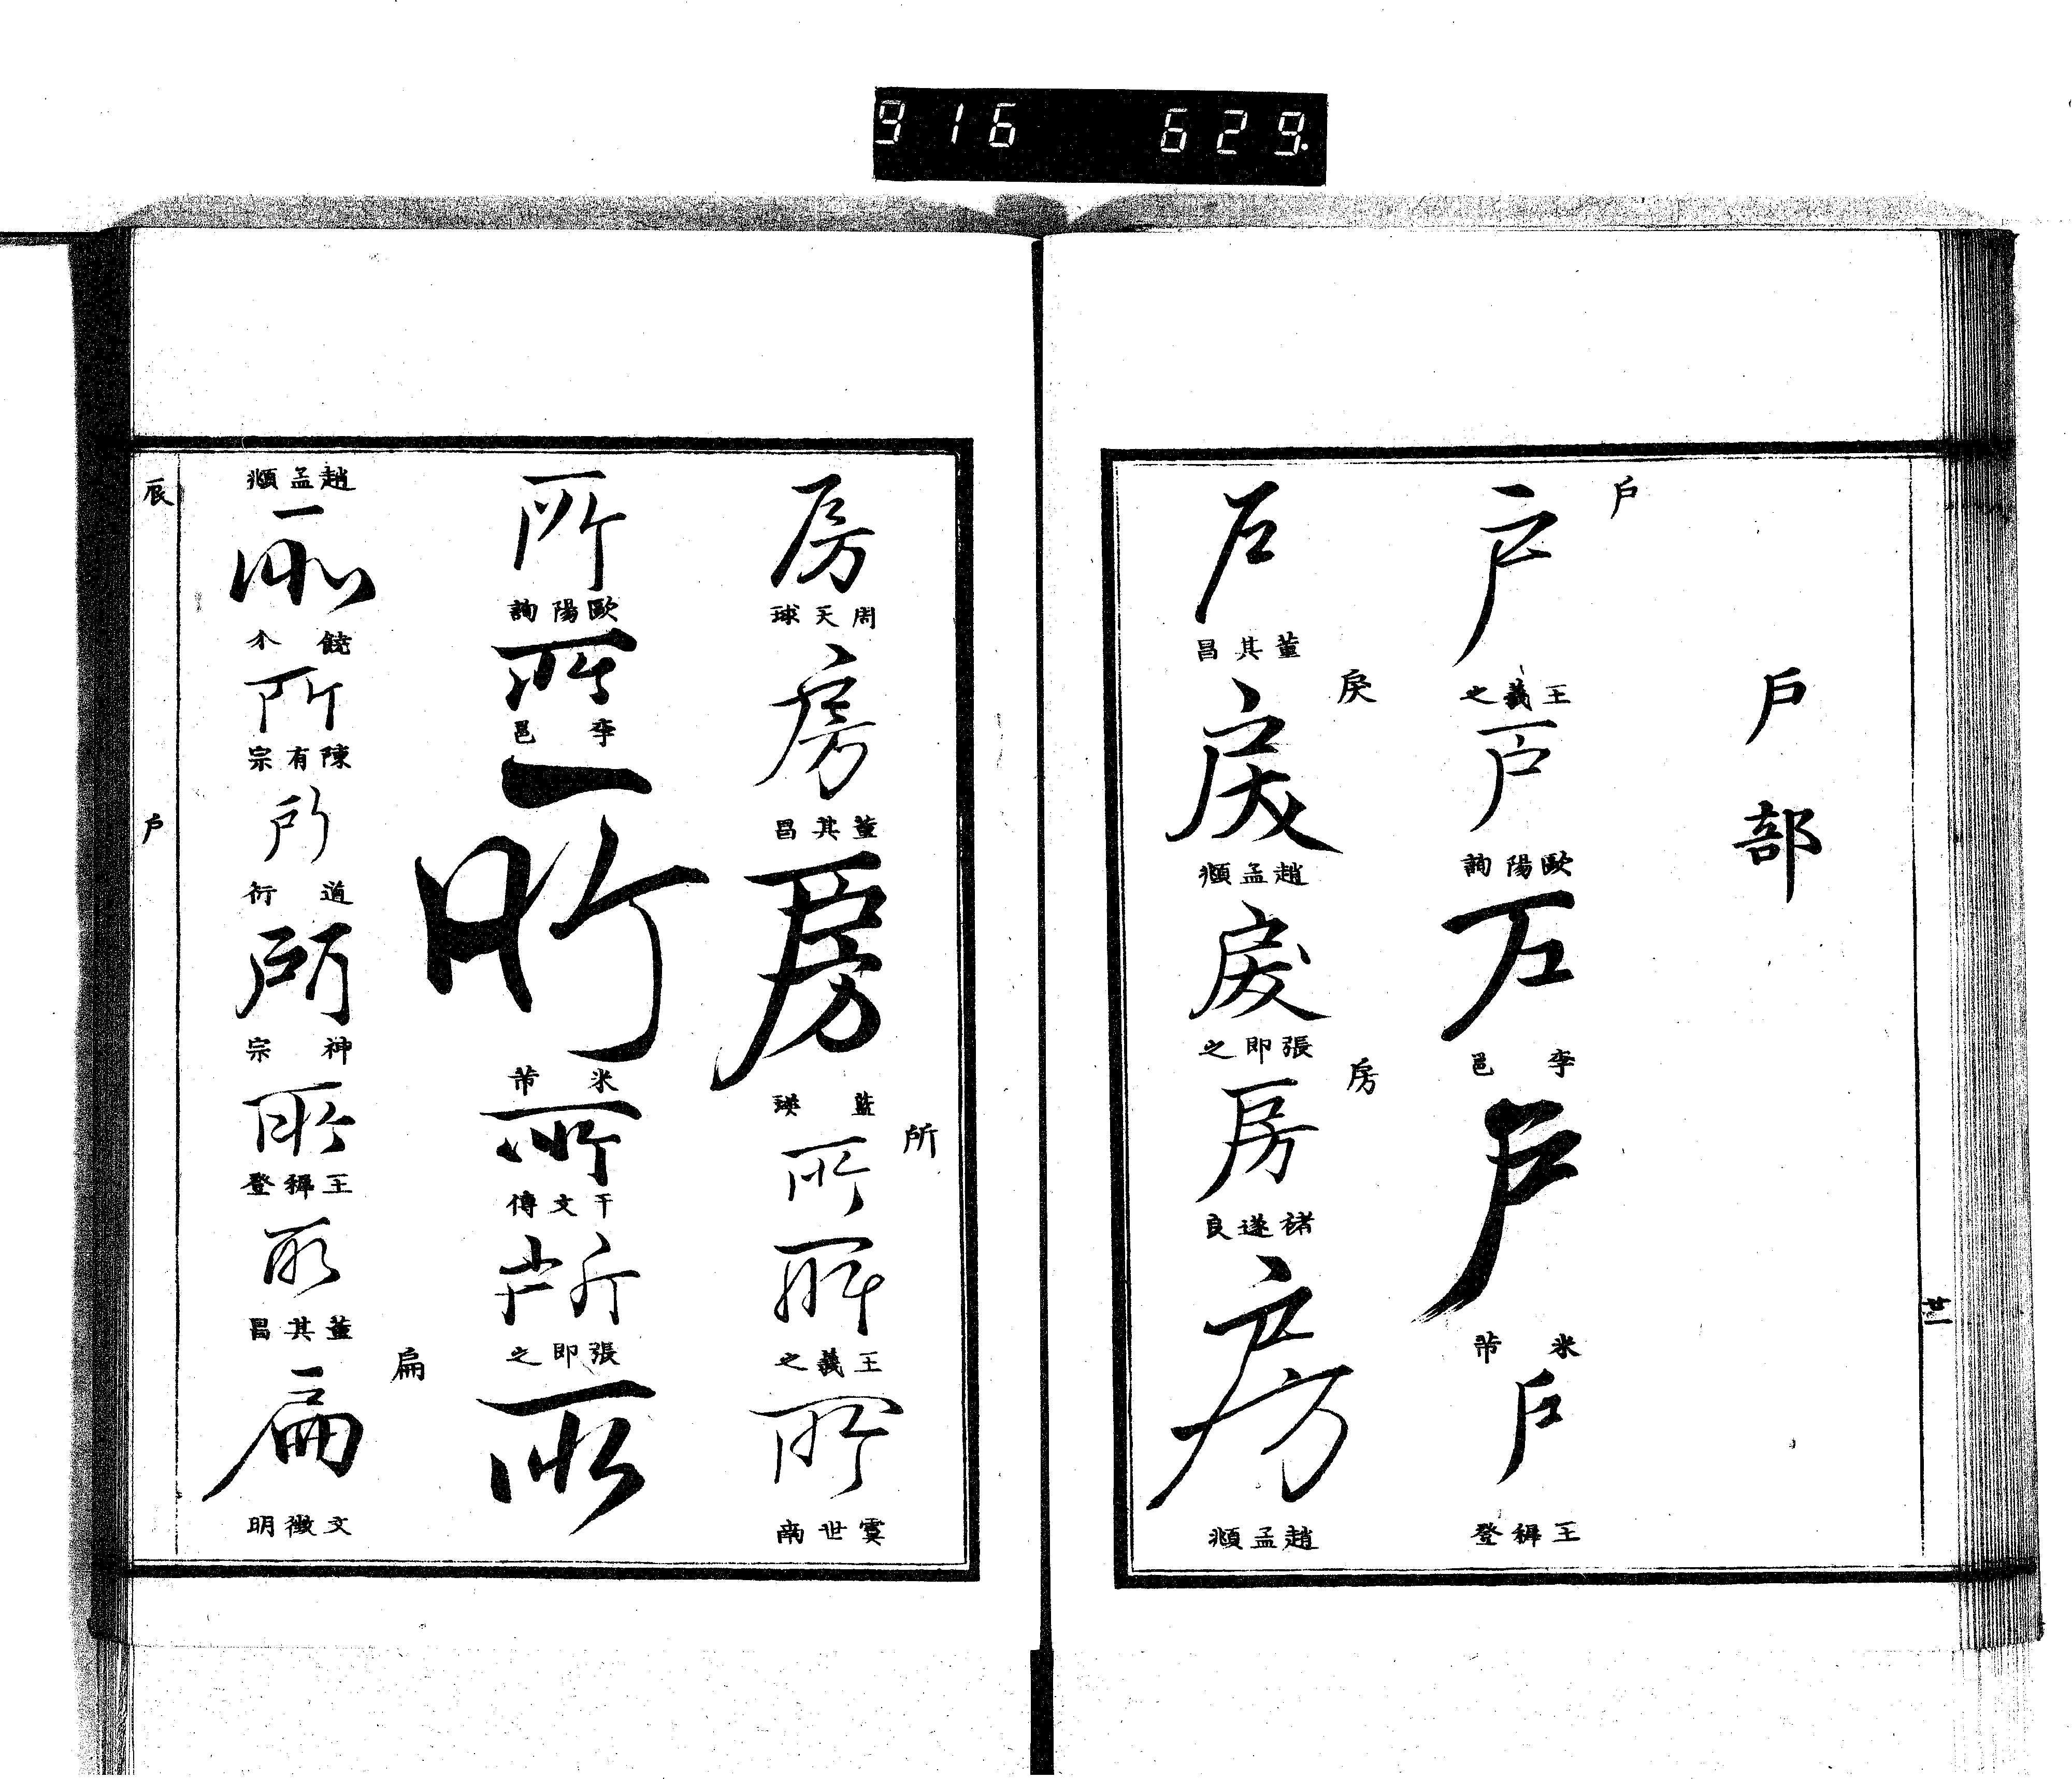 916 629.
戶部
戶
戶
王羲之
戶
歐陽詢
戶
李邕
戶
米芾
戶
王穉登
戶
董其昌
戾
戾
趙孟頫
戾
張即之
房
房
褚遂良
房
趙孟頫
廿一
房
周天球
房
董其昌
房
藍瑛
所
所
所
王羲之
所
虞世南
所
歐陽詢
所
李邕
所
米芾
所
干文傳
所
張即之
所
趙孟頫
所
饒介
所
陳有宗
所
道衍
所
神宗
所
王穉登
所
董其昌
扁
扁
文徵明
戶